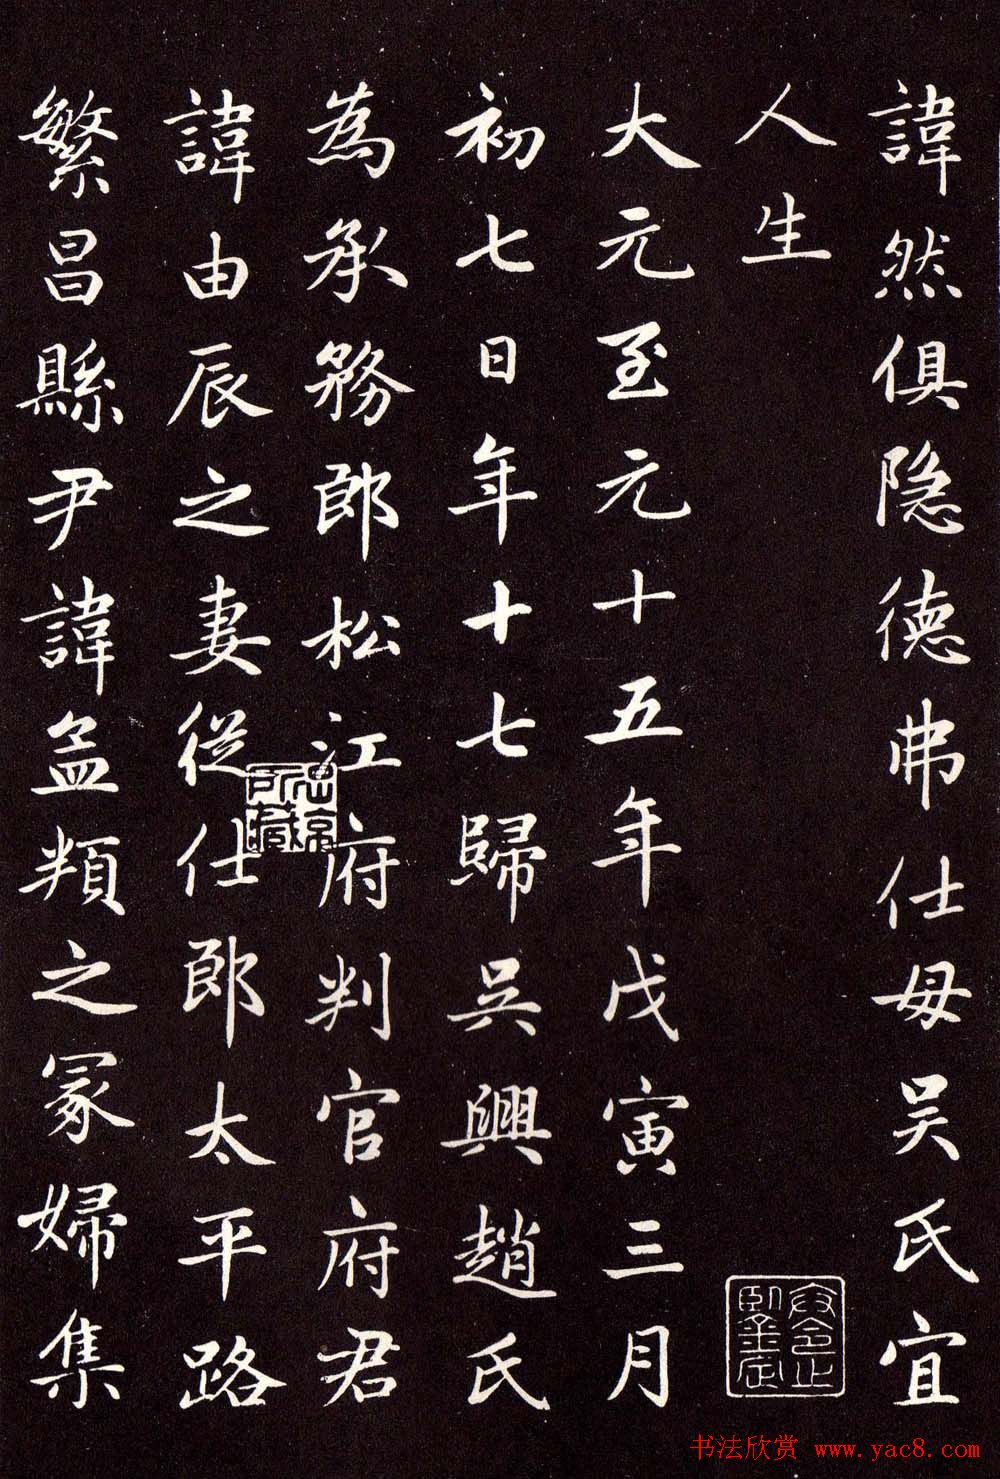 諱然俱隐德弗仕母吴氏宜
人生
大元至元十五年戊寅三月
初七日年十七歸吴興趙氏
為承務郎松江府判官府君
諱由辰之妻從仕郎太平路
繁昌縣尹諱孟頖之冢婦集
所藏
书法欣赏 www.yac8.com